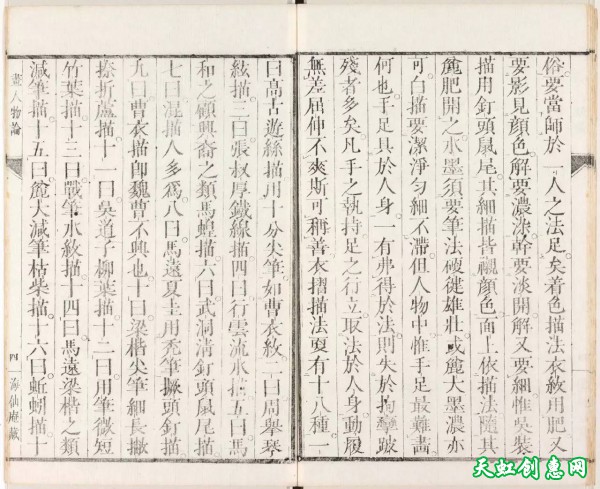 俗要當師於一人之法足矣着色描法衣紋用肥又
要影見顔色解要濃染幹要淡開解又要細惟吳裝
描用釘頭鼠尾其細描皆襯顔色面上依描法隨其
麄肥開之水墨須要筆法硬健雄壯或麄大墨濃亦
可白描要潔淨勻細不滯但人物中惟手足最難畫
何也手足具於人身一有弗得於法則失於拘攣跛
殘者多矣凡手之執持足之行立取法於人身動履
無差屈伸不爽斯可稱善衣摺描法更有十八種一
曰高古遊絲描用十分尖筆如曹衣紋二曰周舉琴
絃描三曰張叔厚鐵線描四曰行雲流水描五曰馬
和之顧興裔之類馬蝗描六曰武洞清釘頭鼠尾描
七曰混描人多爲八曰馬遠夏圭用禿筆撅頭釘描
九曰曹衣描卽魏曹不興也十曰梁楷尖筆細長撇
捺折蘆描十一曰吳道子柳葉描十二曰用筆微短
竹葉描十三曰戰筆水紋描十四曰馬遠梁楷之類
減筆描十五曰麄大減筆枯柴描十六曰蚯蚓描十
畫人物論
四
海仙庵藏
天虹创意网